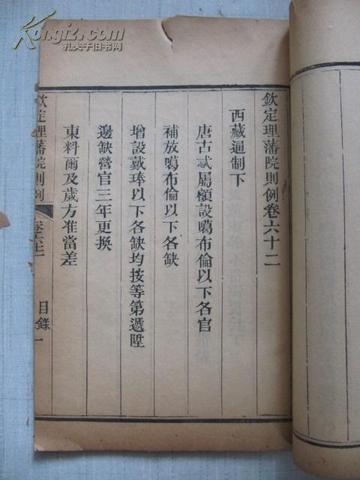 Kongfz.com
孔夫子旧书网
欽定理藩院則例卷六十二
西藏通制下
唐古忒屬額設噶布倫以下各官
補放噶布倫以下各缺
增設戴琫以下各缺均按等第遞陞
邊缺營官三年更換
東科爾及歲方准當差
欽定理藩院則例
目錄 一